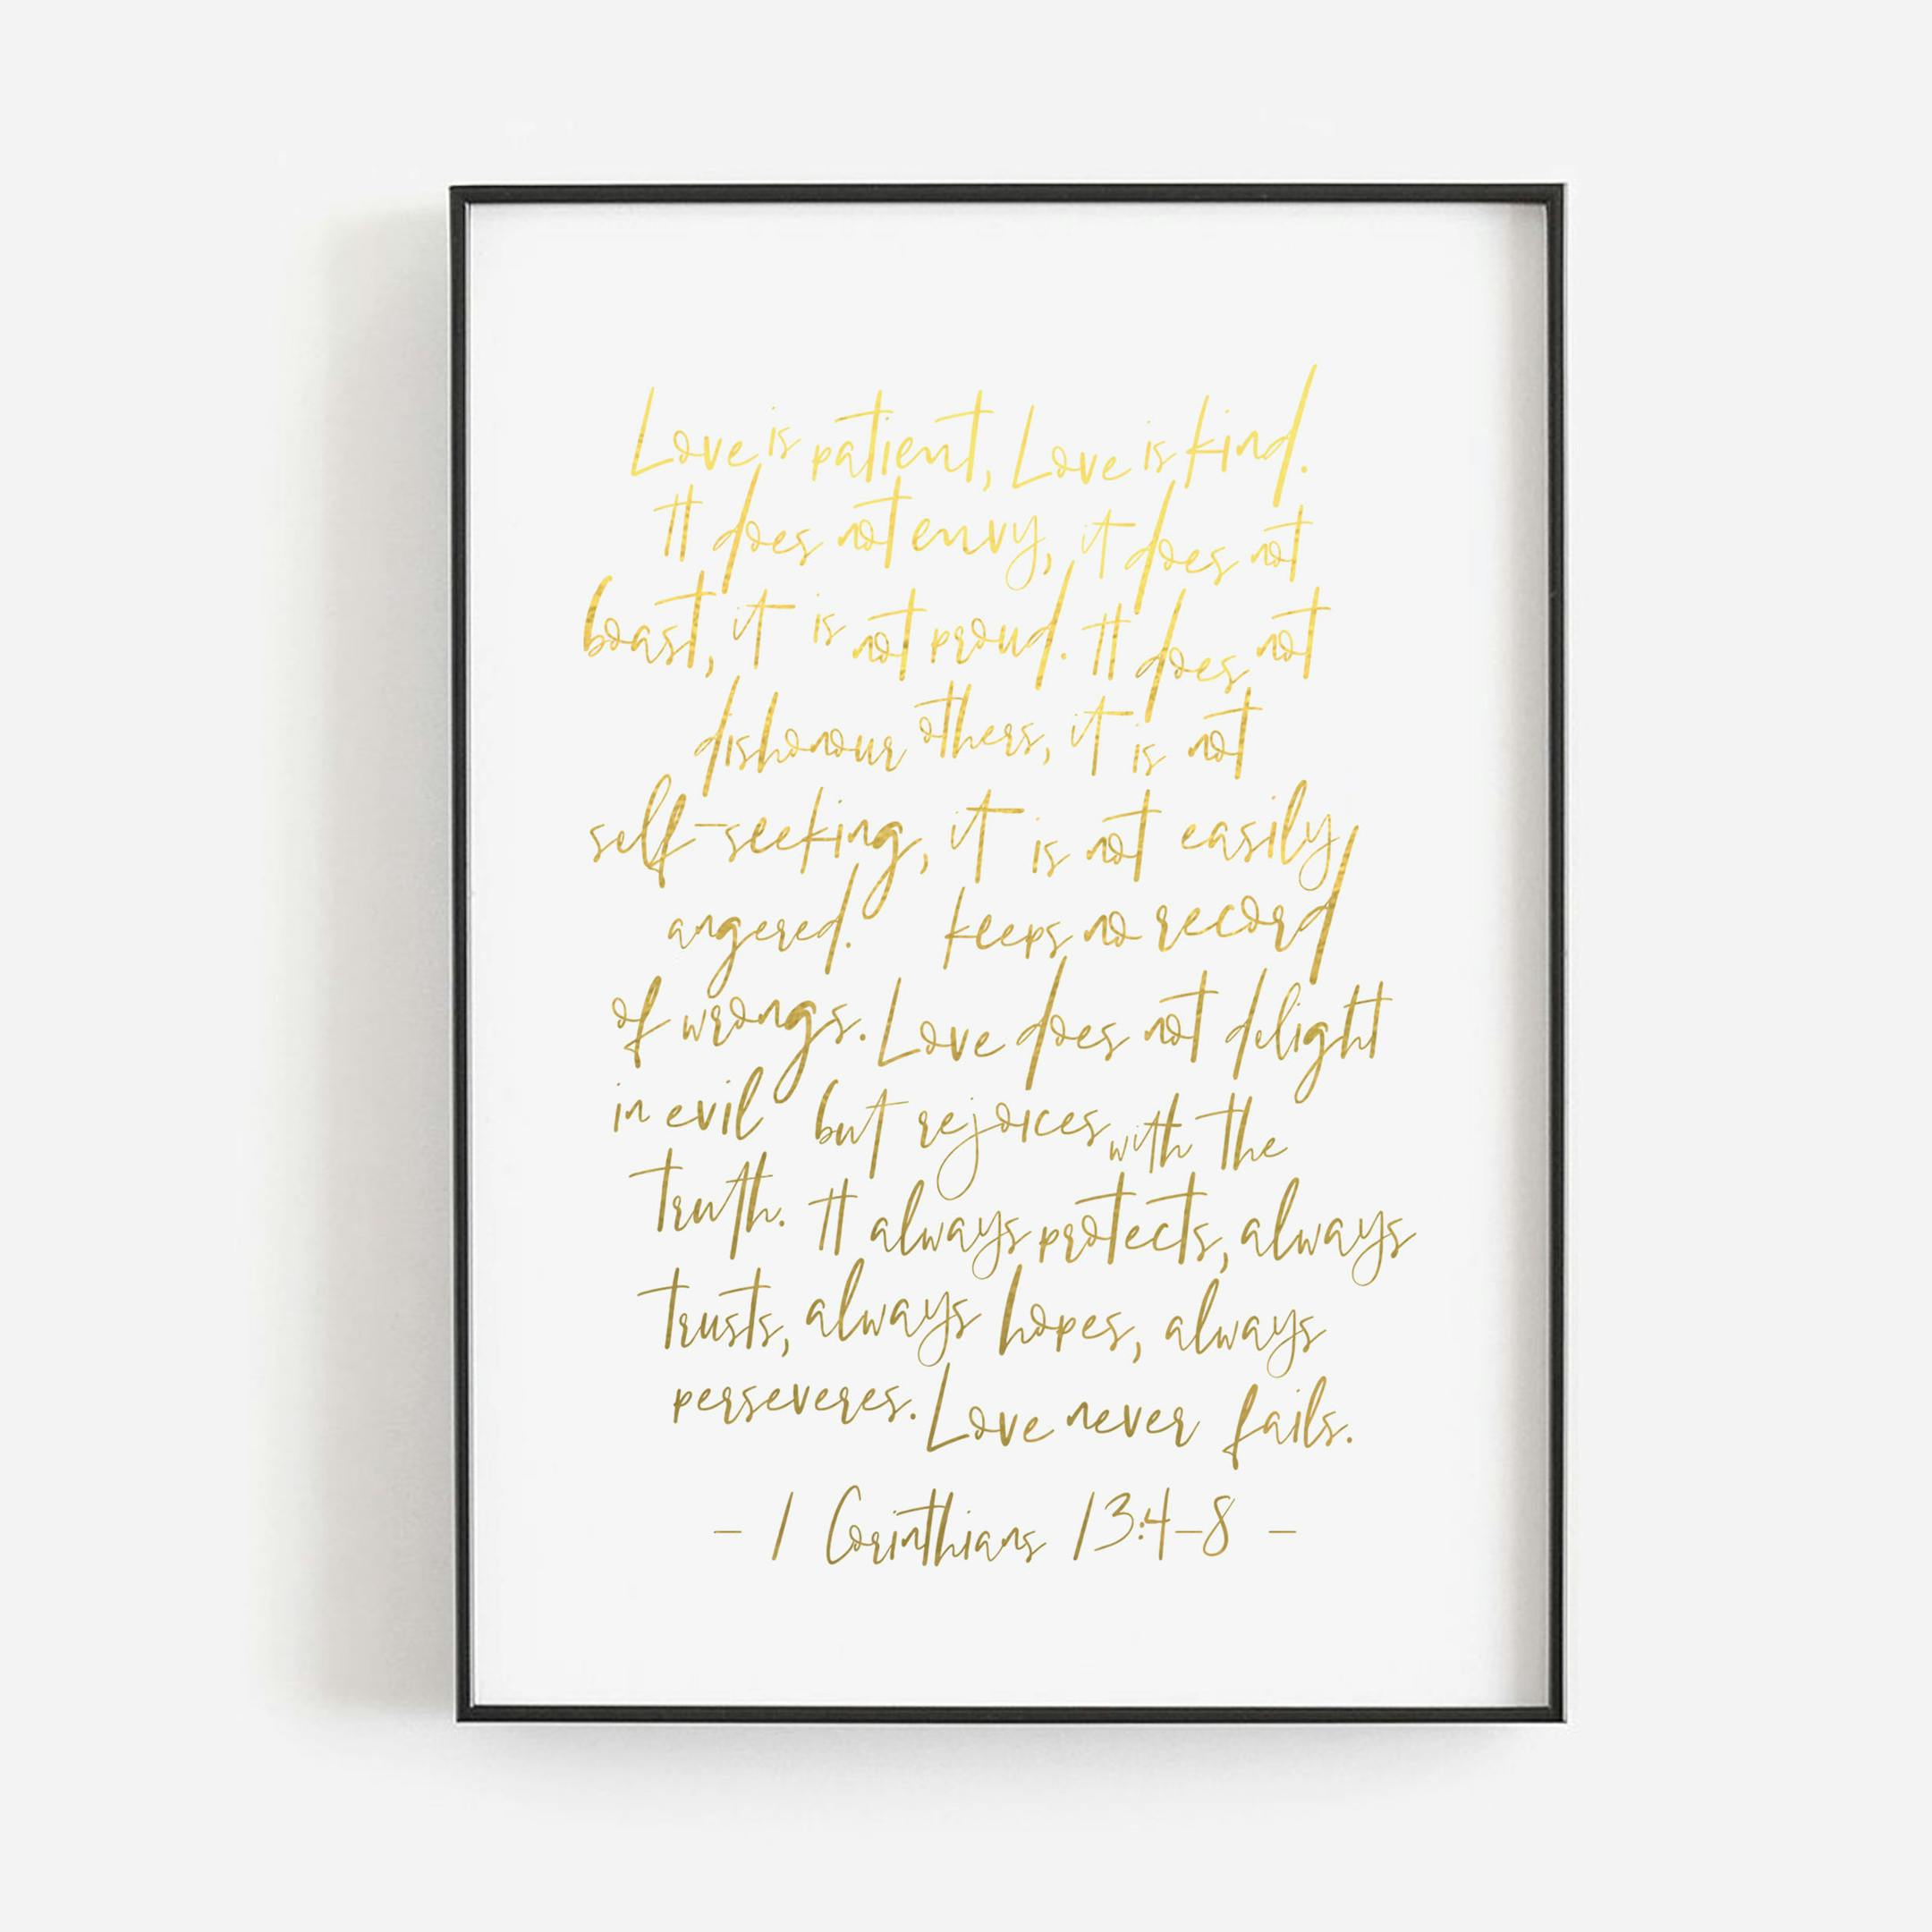 Love is patient, Love is kind.
It does not envy, it does not
boast, it is not proud. It does not
dishonour others, it is not
self-seeking, it is not easily
angered. keeps no record
of wrongs. Love does not delight
in evil but rejoices with the
truth. It always protects, always
trusts, always hopes, always
perseveres. Love never fails.
- 1 Corinthians 13:4-8 -